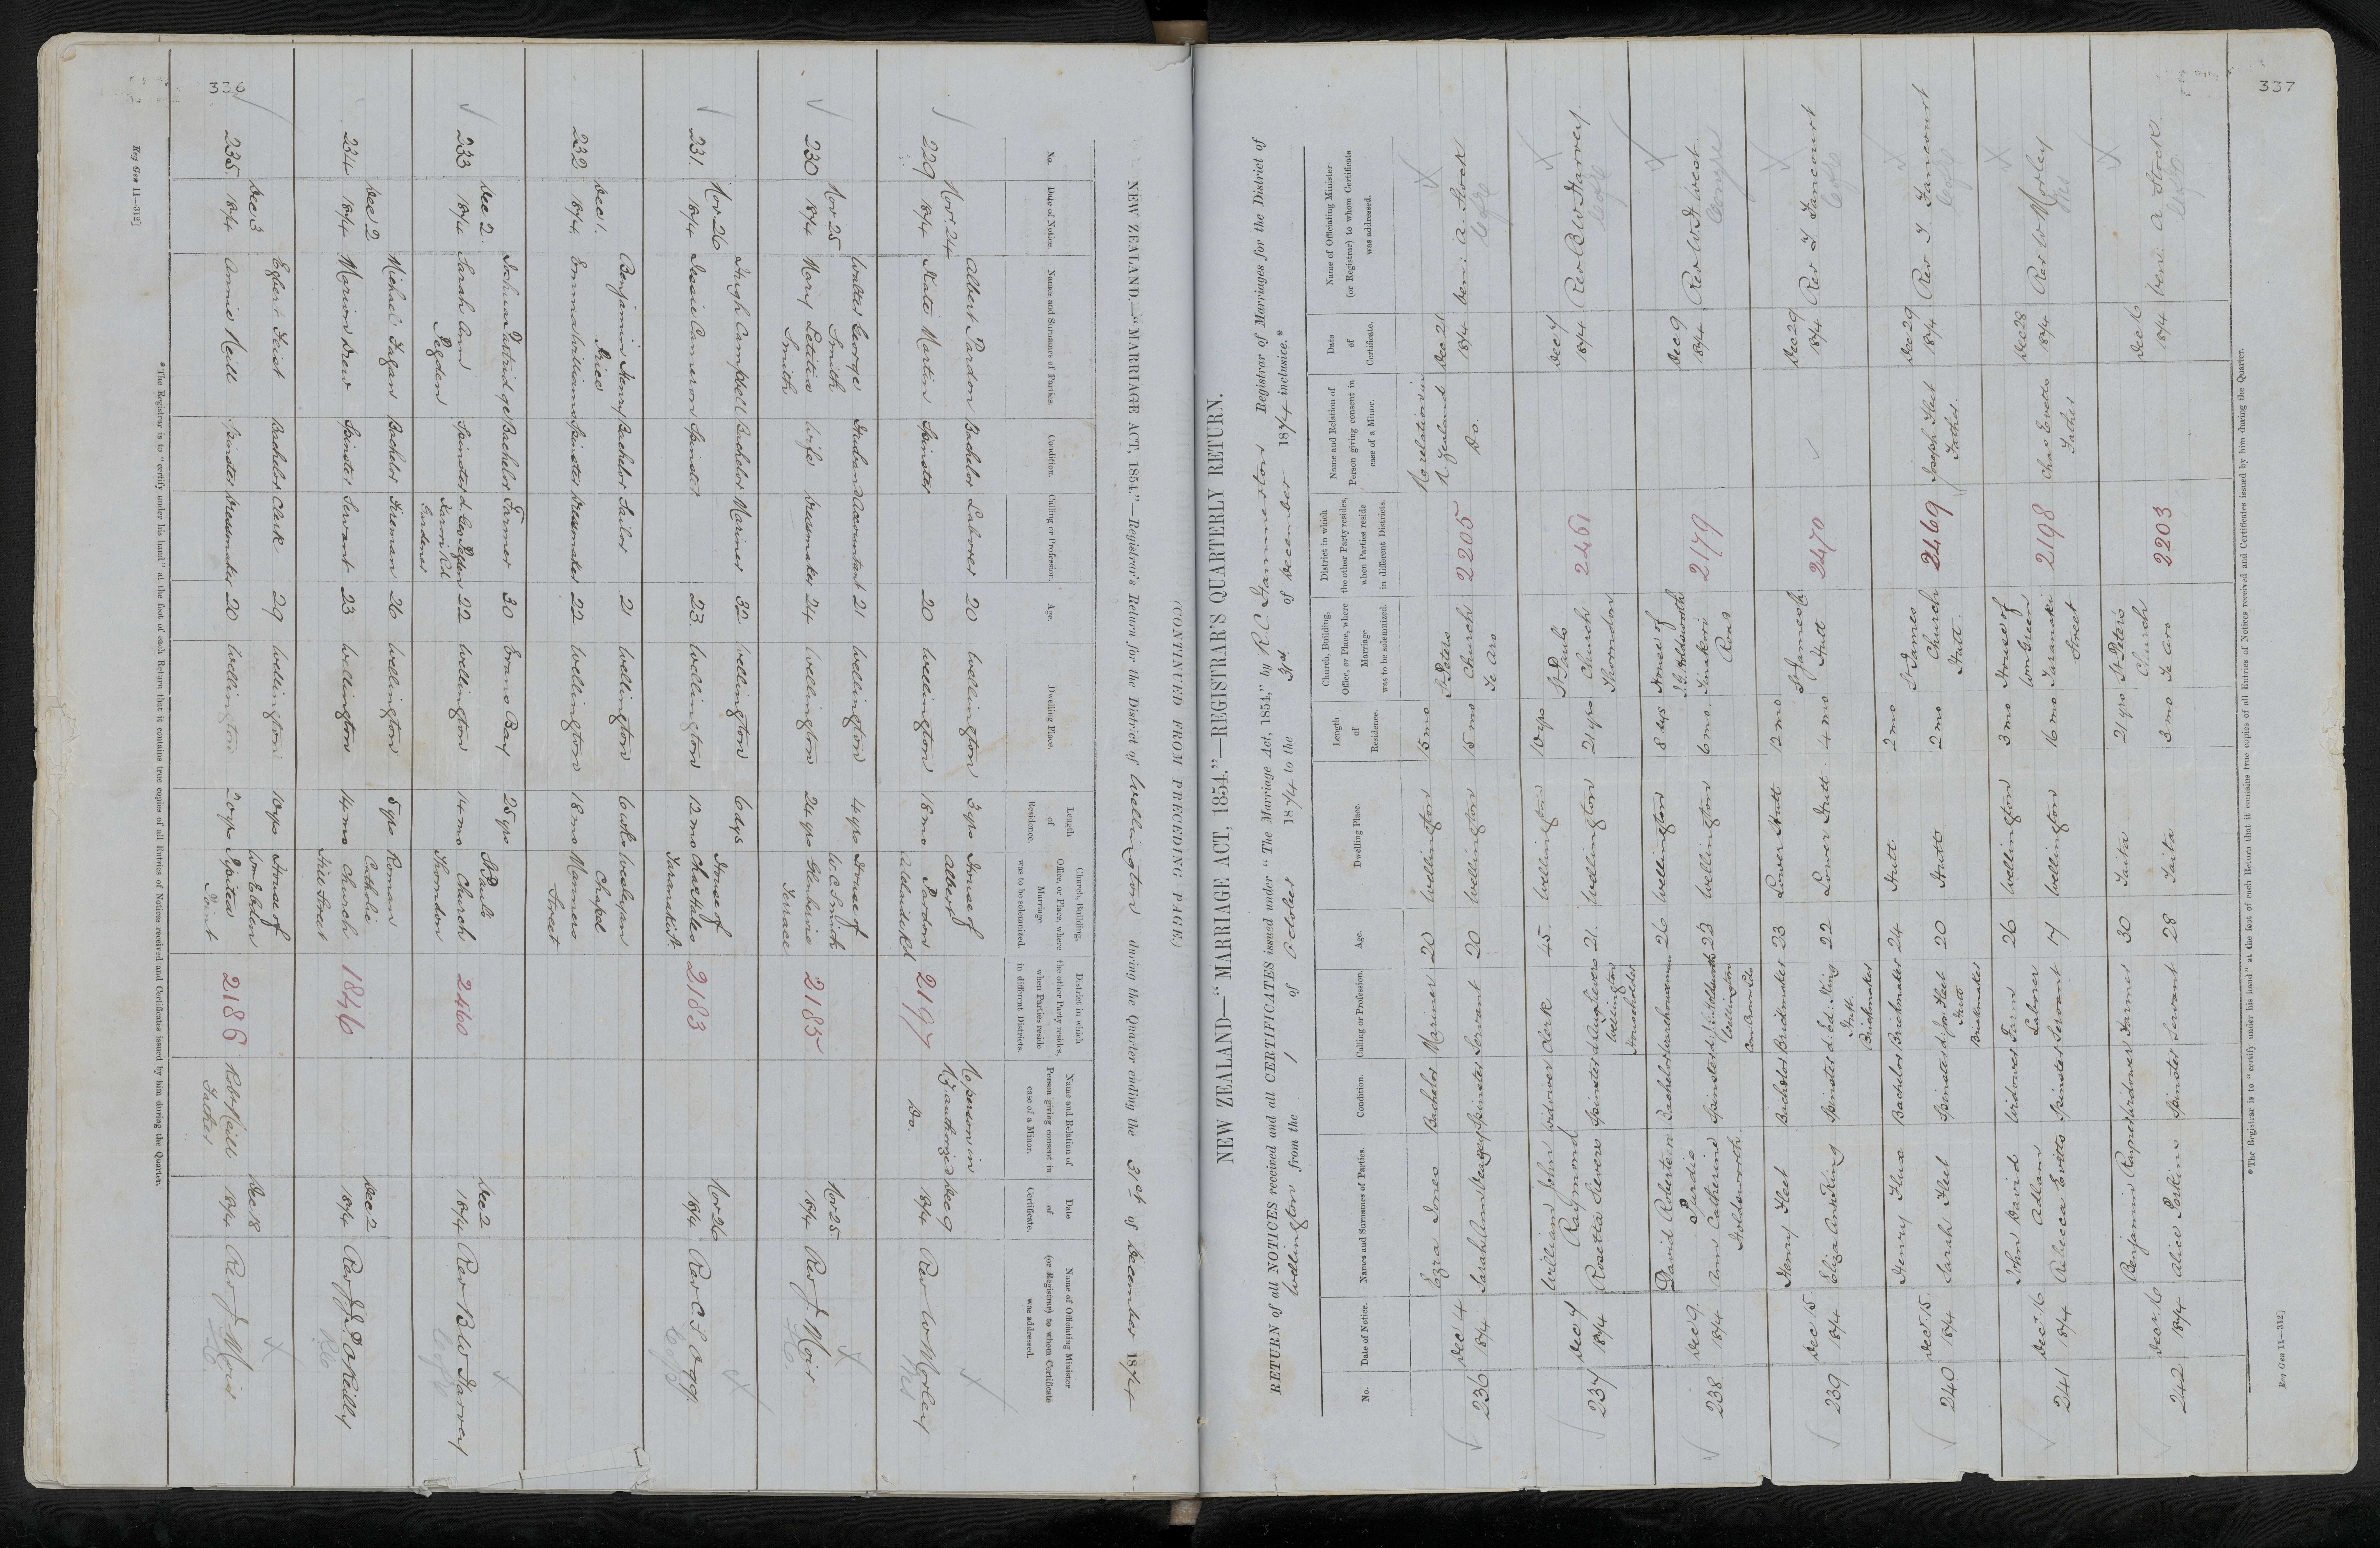 336
NEW ZEALAND.—"MARRIAGE ACT, 1854."—Registrar's Return for the District of Wellington during the Quarter ending the 31st of December 1874
No.
Date of Notice.
Names and Surnames of Parties.
Condition.
Calling or Profession.
Age.
Dwelling Place.
Length of Residence.
Church, Building, Office, or Place, where Marriage was to be solemnized.
District in which the other Party resides, when Parties reside in different Districts.
Name and Relation of Person giving consent in case of a Minor.
Date of Certificate.
Name of Officiating Minister (or Registrar) to whom Certificate was addressed.
229 Nov. 24 1874
Albert Pardon Bachelor Laborer 20 Wellington 3 yrs House of Albert Pardon Adelaide Rd
Kate Martin Spinster 20 Wellington 18 mo
2197
No person in NZ authorized
Do.
Dec 9 1874 Rev W Morley
230 Nov 25 1874
Walter George Smith Husband Accountant 21 Wellington 4 yrs House of W C Smith Glenbervie Terrace
Mary Letitia Smith Wife Dressmaker 24 Wellington 24 yrs
2185
Nov 25 1874 Rev J. Moir
231. Nov 26 1874
Hugh Campbell Bachelor Mariner 32 Wellington 6 dys House of Chas Hales Taranaki St.
Jessie Cameron Spinster 23 Wellington 12 mo
2183
Nov 26 1874 Rev C S Ogg.
232 Dec 1. 1874
Benjamin Henry Price Bachelor Sailor 21 Wellington 6 wks Wesleyan Chapel Manners Street
Emma Williams Spinster Dressmaker 22 Wellington 18 mo
233 Dec 2. 1874
Joshua Partridge Bachelor Farmer 30 Evans Bay 25 yrs St Pauls Church Thorndon
Sarah Ann Pegden Spinster d. Geo Pegden Karori Rd Gardener 22 Wellington 14 mo
2460
Dec 2 1874 Rev B W Harvey
234 Dec 2 1874
Michael Fagan Bachelor Fireman 26 Wellington 5 yrs Roman Catholic Church Hill Street
Marion Drew Spinster Servant 23 Wellington 14 mo
1846
Dec 2 1874 Rev J. O'Reilly
235 Dec 3 1874
Egbert Feist Bachelor Clerk 29 Wellington 10 yrs House of Wm Eblen Pipitea Point
Annie Kell Spinster Dressmaker 20 Wellington 20 yrs
2186
Robt Neill Father
Dec 18 1874 Rev J. Moir
*The Registrar is to "certify under his hand" at the foot of each Return that it contains true copies of all Entries of Notices received and Certificates issued by him during the Quarter.
Reg Gen 11—312]
337
(CONTINUED FROM PRECEDING PAGE.)
NEW ZEALAND—"MARRIAGE ACT, 1854."—REGISTRAR'S QUARTERLY RETURN.
RETURN of all NOTICES received and all CERTIFICATES issued under "The Marriage Act, 1854," by R. C. Hammerton Registrar of Marriages for the District of
Wellington from the 1 of October 1874 to the 31st of December 1874 inclusive.*
No.
Date of Notice.
Names and Surnames of Parties.
Condition.
Calling or Profession.
Age.
Dwelling Place.
Length of Residence.
Church, Building, Office, or Place, where Marriage was to be solemnized.
District in which the other Party resides, when Parties reside in different Districts.
Name and Relation of Person giving consent in case of a Minor.
Date of Certificate.
Name of Officiating Minister (or Registrar) to whom Certificate was addressed.
236 Dec 4 1874
Ezra Jones Bachelor Mariner 20 Wellington 15 mo St Peters Church Te Aro
Sarah Ann Spinster Servant 20 Wellington 15 mo
2205
No relation in N Zealand
Do.
Dec 21 1874 Ven: A. Stock
237 Dec 7 1874
William John Raymond Widower Clerk 45 Wellington 10 yrs St Pauls Church Thorndon
Rosetta Severs Spinster Wellington Householder 21 Wellington 21 yrs
2461
Dec 7 1874 Rev B W Harvey
238 Dec 9. 1874
David Robertson Purdie Bachelor Warehouseman 26 Wellington 8 dys House of J. G. Holdsworth Tinakori Road
Ann Catherine Holdsworth Spinster d. J. G. Holdsworth Wellington 23 Wellington 6 mo.
2179
Dec 9 1874 Rev W. H. West
239 Dec 15 1874
Henry Fleet Bachelor Brickmaker 23 Lower Hutt 12 mo St James Ch Hutt
Eliza Ann King Spinster d. Ed. King Hutt Brickmaker 22 Lower Hutt 4 mo
2470
Dec 29 1874 Rev T Fancourt
240 Dec 15 1874
Henry Flux Bachelor Brickmaker 24 Hutt 2 mo St James Church Hutt
Sarah Fleet Spinster d. Jos Fleet Hutt Brickmaker 20 Hutt 2 mo
2469
Joseph Fleet Father
Dec 29 1874 Rev T Fancourt
241 Dec 16 1874
John David Adlam Widower Farm Laborer 26 Wellington 3 mo House of Wm Green Taranaki Street
Rebecca Evetts Spinster Servant 17 Wellington 16 mo
2198
Chas Evetts Father
Dec 28 1874 Rev W Morley
242 Dec 16 1874
Benjamin Rayner Widower Farmer 30 Taita 21 yrs St Peters Church Te Aro
Alice Perkins Spinster Servant 28 Taita 3 mo
2203
Dec 16 1874 Ven: A Stock
*The Registrar is to "certify under his hand" at the foot of each Return that it contains true copies of all Entries of Notices received and Certificates issued by him during the Quarter.
Reg Gen 11—312]